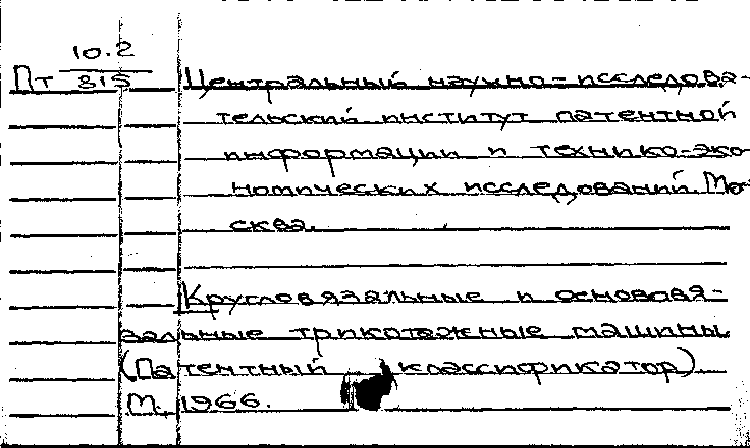 10.2
Пт 815 Центральный научно-исследова-
тельский институт патентной
информации и технико-эко-
номических исследований. Мо-
сква.
Кругловязальные и основовя-
зальные трикотажные машины
(Патентный классификатор).
М., 1966.